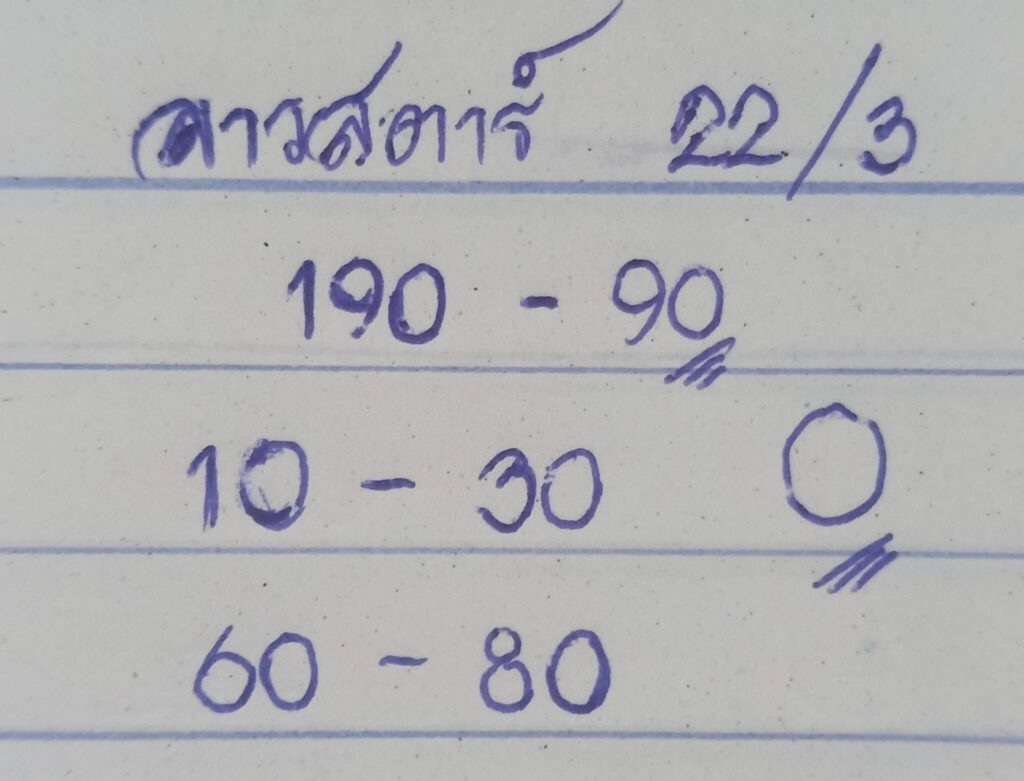 ลาวสตาร์ 22/3
190 - 90
10 - 30 0
60 - 80